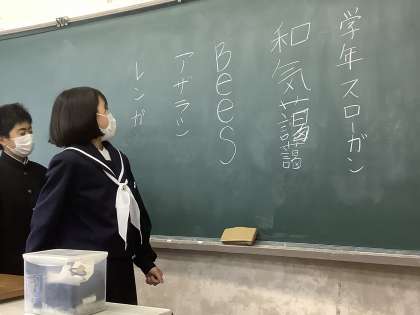 学年スローガン
和気藹藹
Bees
アザラシ
レンガ